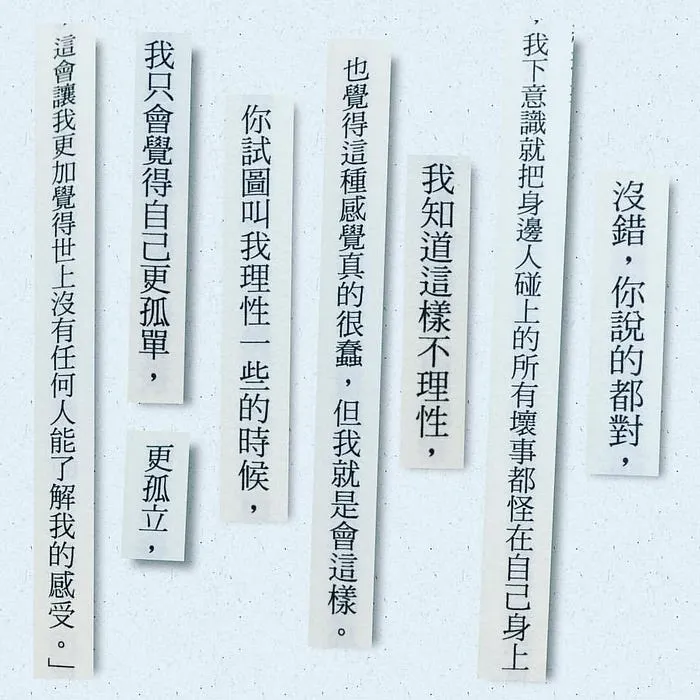 沒錯，你說的都對，
，我下意識就把身邊人碰上的所有壞事都怪在自己身上
我知道這樣不理性，
也覺得這種感覺真的很蠢，但我就是會這樣。
你試圖叫我理性一些的時候，
我只會覺得自己更孤單，
更孤立，
這會讓我更加覺得世上沒有任何人能了解我的感受。」